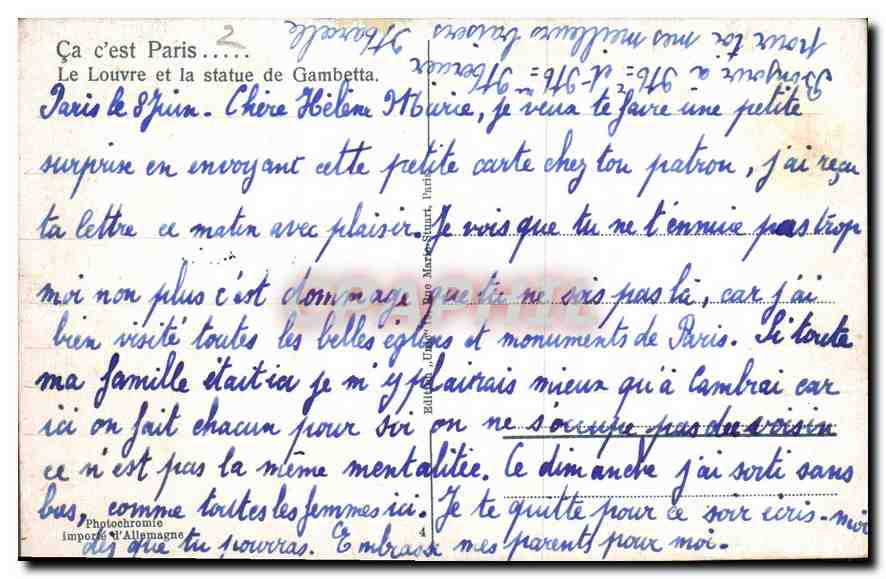 Ça c'est Paris.....
2
Le Louvre et la statue de Gambetta.
Paris le 8 Juin. Chère Hélène Marie, je veux te faire une petite
surprise en envoyant cette petite carte chez ton patron, j'ai reçu
ta lettre ce matin avec plaisir. Je vois que tu ne t'ennuie pas trop
moi non plus c'est dommage que tu ne sois pas là, car j'ai
bien visité toutes les belles églises et monuments de Paris. Si toute
ma famille était ici je m'y plairais mieux qu'à Cambrai car
ici on fait chacun pour soi on ne s'occupe pas du voisin
ce n'est pas la même mentalitée. Ce dimanche j'ai sorti sans
bas, comme toutes les femmes ici. Je te quitte pour ce soir ecris-moi
dès que tu pourras. Embrasse mes parents pour moi.
Bonjour à Mr et Mme
pour toi mes meilleurs baisers Marcelle
Edition „Union" Rue Marie-Stuart, Paris
Photochromie
importé d'Allemagne
4
SPAPHIL